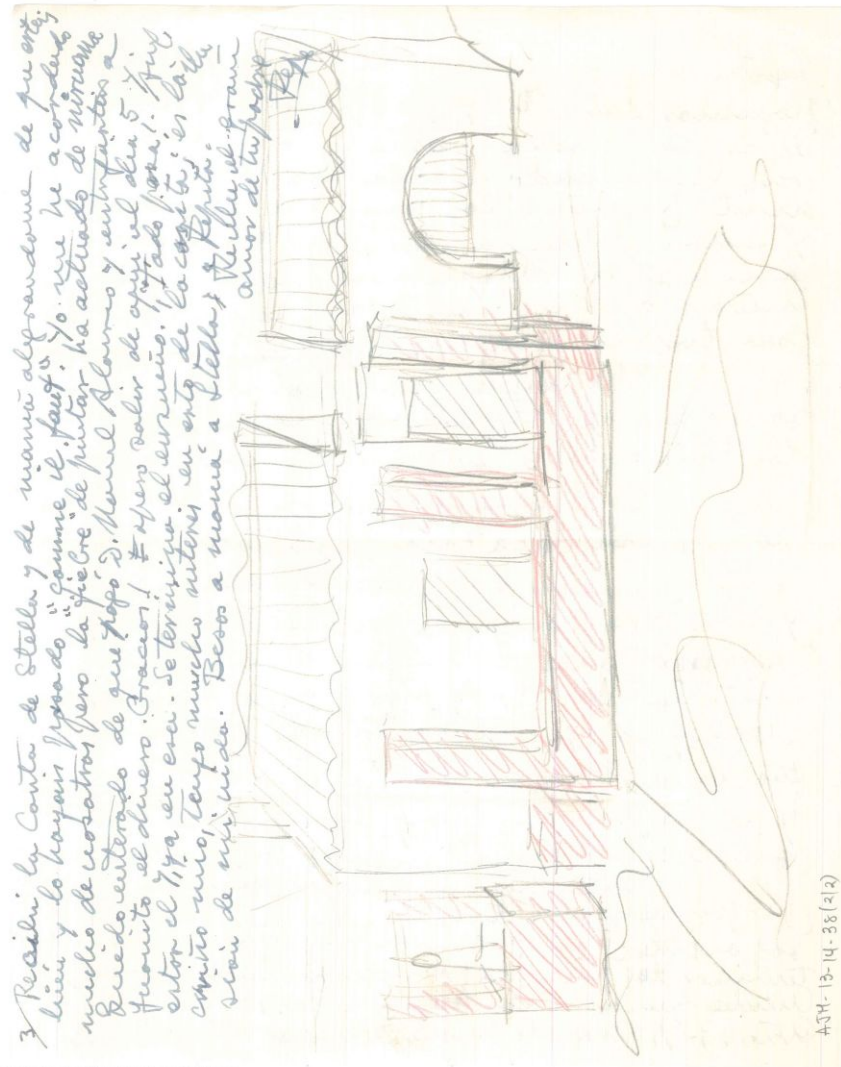 3/ Recibí la Carta de Stella y de mamá alegrandome de que esteis
bien y lo hayais pasado "comme il faut". Yo me he acordado
mucho de vosotras pero la fiebre de pintar ha actuado de
Quedo enterado de que pagó D. Manuel Alonso y entregarias a
Juanito el dinero. Gracias! Espero salir de aqui el dia 5 y
estar el 7, ya en esa. Se terminó el ensueño. ¡Todo pasa!. Fijate
cariño mio, tengo mucho interes en esto de la casita; es la ilu-
sión de mi vida. Besos a mamá a Stella y Pepito.
Recibe el gran
amor de tu padre
- Pepe
AJM-13-14-38(2/2)